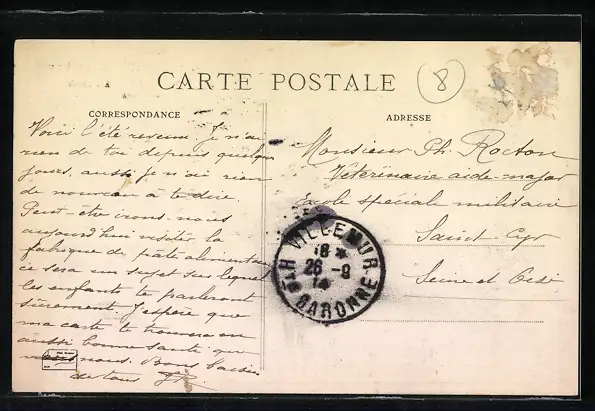 CARTE POSTALE
8
CORRESPONDANCE
Voici l'été revenu. Je n'ai
rien de toi depuis quelques
jours, aussi je n'ai rien
de nouveau à te dire.
Peut-être irons-nous
aujourd'hui visiter la
fabrique de pâte alimentaire
ce sera un sujet sur lequel
les enfants te parleront
sûrement. J'espère que
ma carte te trouvera en
aussi bonne santé que
nous. Bons baisers
de tous
ADRESSE
Monsieur Ph. Rocton
Vétérinaire aide-major
École spéciale militaire
Saint-Cyr
Seine et Oise
VILLEMUR
18 *
26 - 9
14
HTE GARONNE